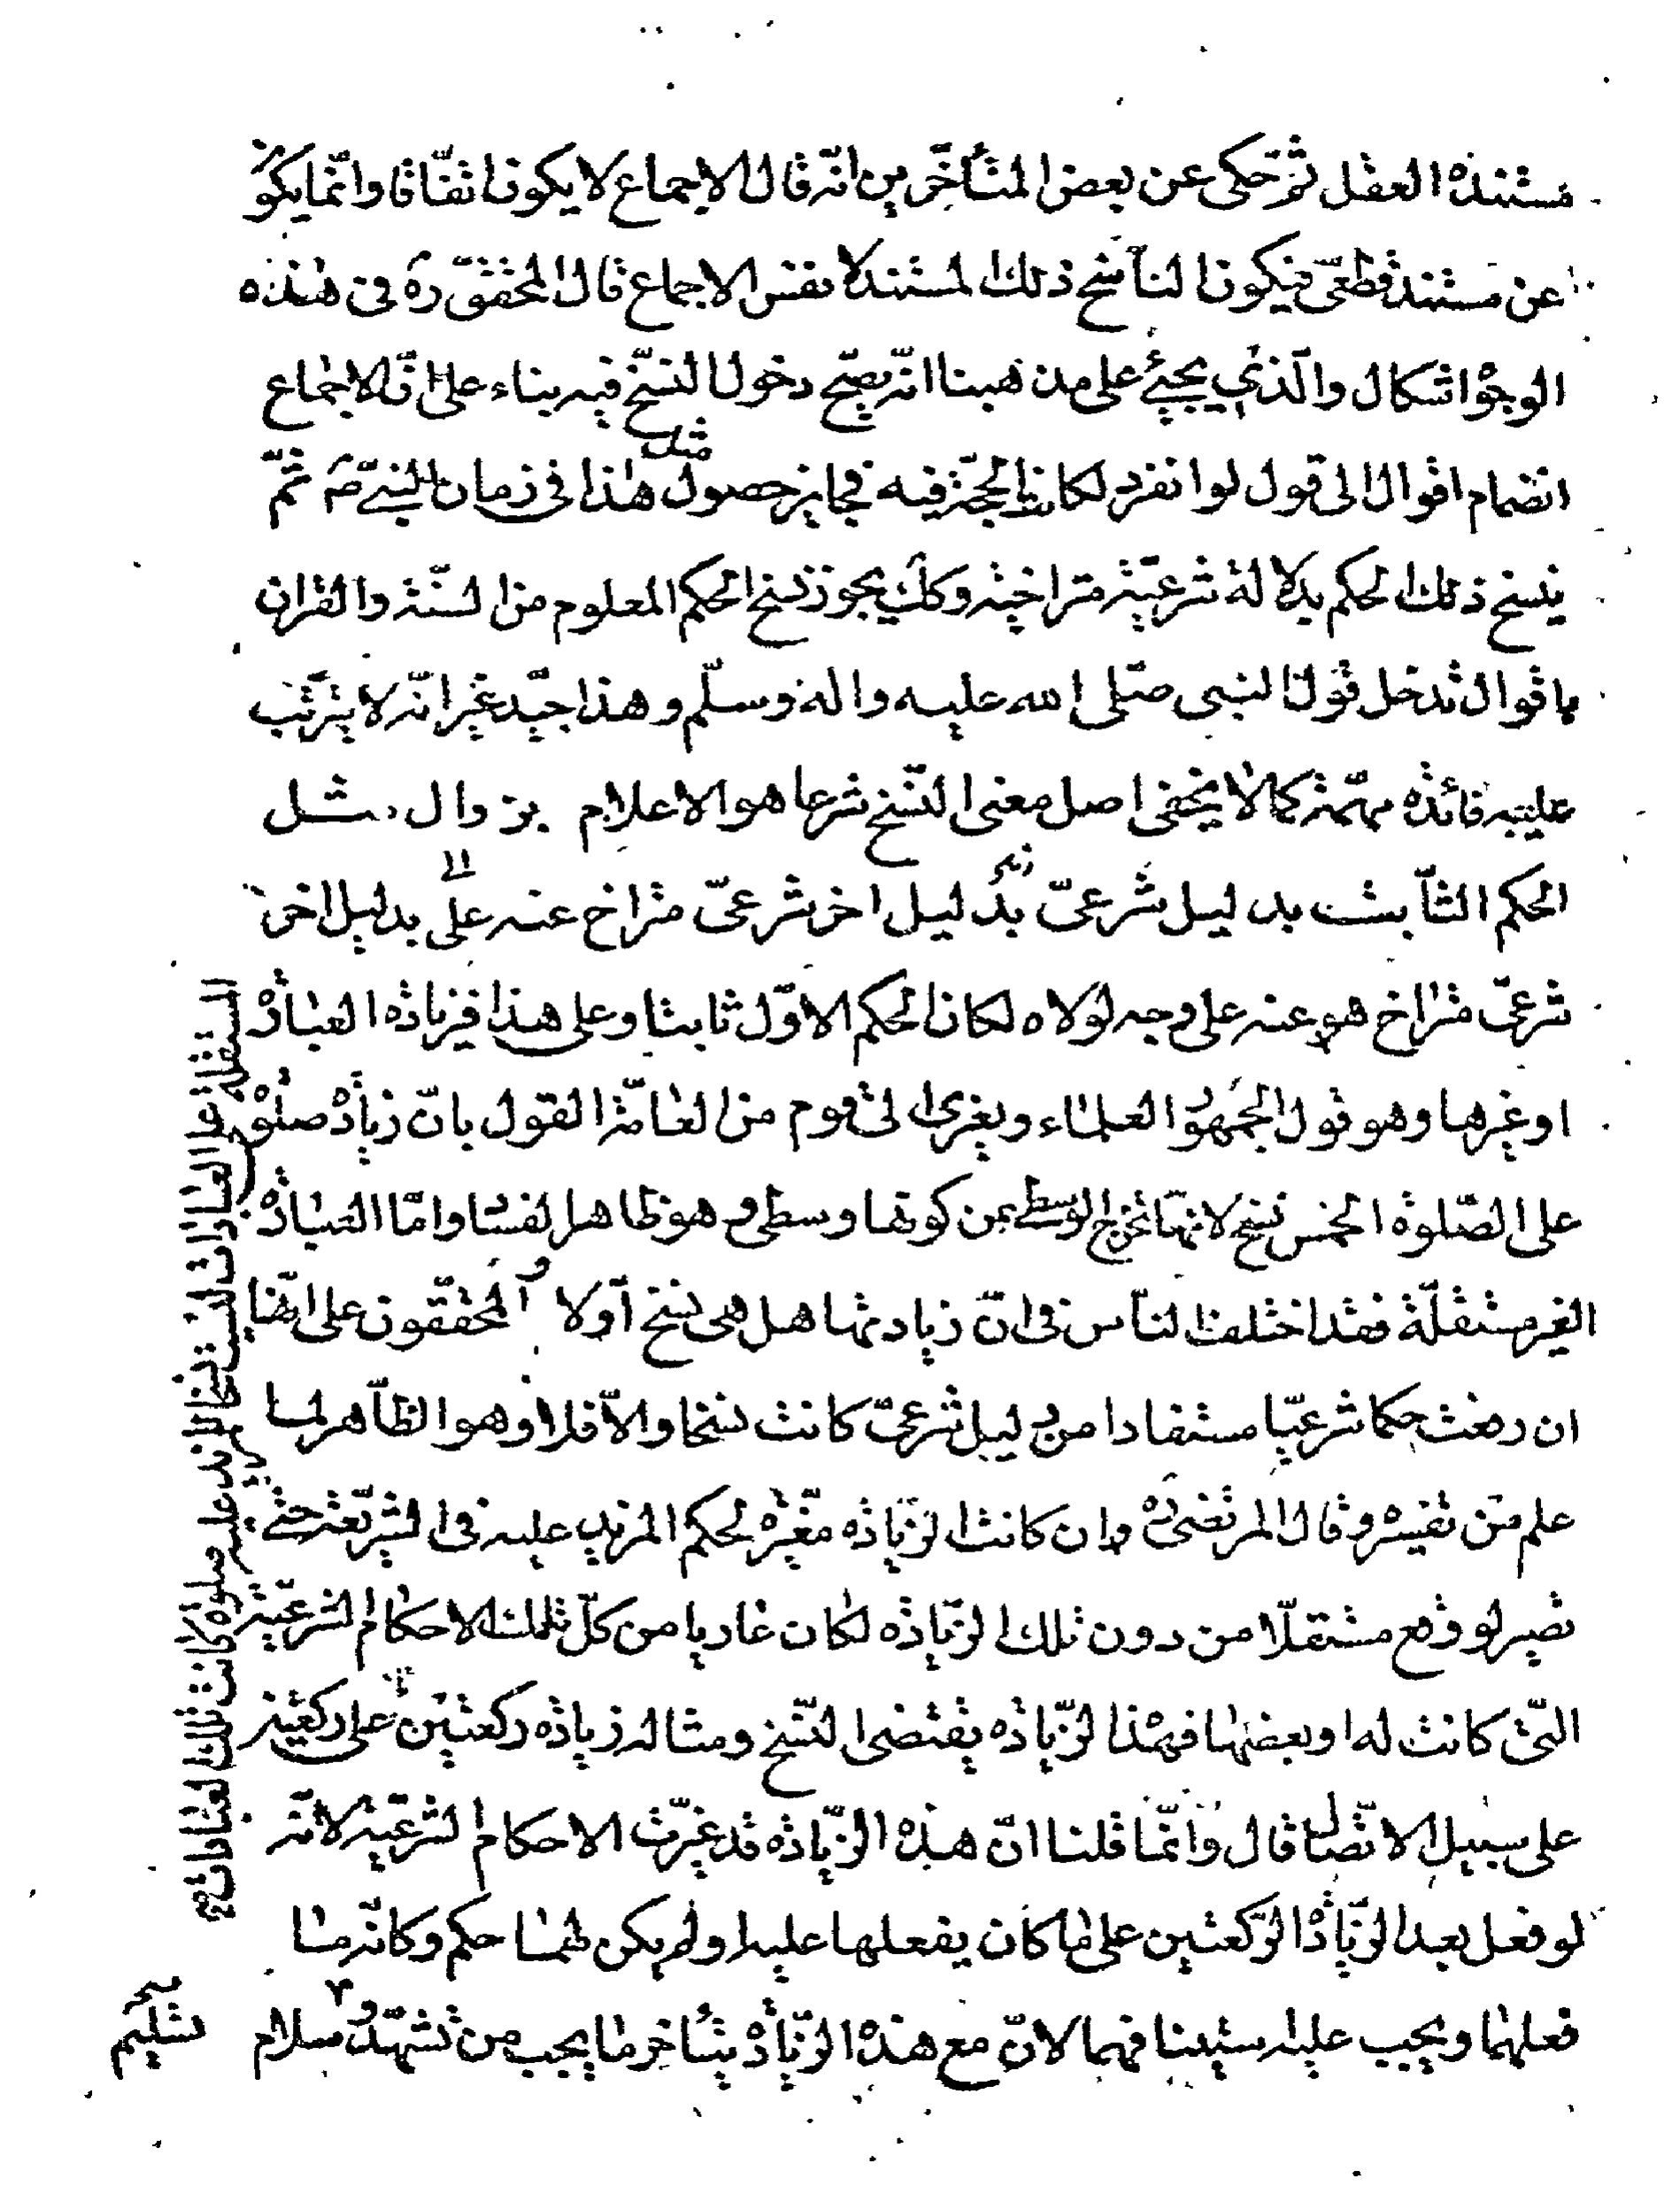 مستنده العقل ثم حكى عن بعض المتأخرين انه قال الاجماع لا يكون اتفاقا وانما يكون
عن مستند قطعى فيكون الناسخ ذلك المستند لا نفس الاجماع قال المحقق ره فى هذه
الوجوه اشكال والذى يجيئ على مذهبنا انه يصح دخول النسخ فيه بناء على ان الاجماع
انضمام اقوال الى قول لو انفرد لكانت الحجة فيه فجايز حصول مثل هذا فى زمان النبى ص ثم
ينسخ ذلك الحكم بدلالة شرعية متراخية وكك يجوز نسخ الحكم المعلوم من السنة والقران
باقوال تدخل قول النبى صلى الله عليه واله وسلم وهذا جيد غير انه لا يترتب
عليه فائدة مهمة كما لا يخفى اصل معنى النسخ شرعا هو الاعلام بزوال مثل
الحكم الثابت بدليل شرعى بدليل اخر شرعى متراخ عنه على بدليل اخر
شرعى متراخ هو عنه على وجه لولاه لكان الحكم الاول ثابتا وعلى هذا فزيادة العبادة
المستقلة على العبادات ليست نسخا للمزيد عليه صلوة كانت تلك العبادات
او غيرها وهو قول الجمهور العلماء ويعزى الى قوم من العامة القول بان زيادة صلوة
على الصلوة الخمس نسخ لانها تخرج الوسطى من كونها وسطى وهو ظاهر الفساد واما العبادة
الغير مستقلة فقد اختلف الناس فى ان زيادتها هل هى نسخ اولا والمحققون على انها
ان رفعت حكما شرعيا مستفادا من دليل شرعى كانت نسخا والا فلا وهو الظاهر لما
علم من تفسيره وقال المرتضى ره وان كانت الزيادة مغيرة لحكم المزيد عليه فى الشريعة حتى
تصير لو وقع مستقلا من دون تلك الزيادة لكان عاريا من كل تلك الاحكام الشرعية
التى كانت له او بعضها فهذا الزيادة يقتضى النسخ ومثاله زيادة ركعتين على ركعتين
على سبيل الاتصال قال وانما قلنا ان هذه الزيادة قد غيرت الاحكام الشرعية لانه
لو فعل بعد الزيادة الركعتين على ما كان يفعلها عليه اولا لم يكن لهما حكم وكانه ما
فعلهما ويجب عليه استينافهما لان مع هذه الزيادة يتأخر ما يجب من تشهد وسلام تسليم